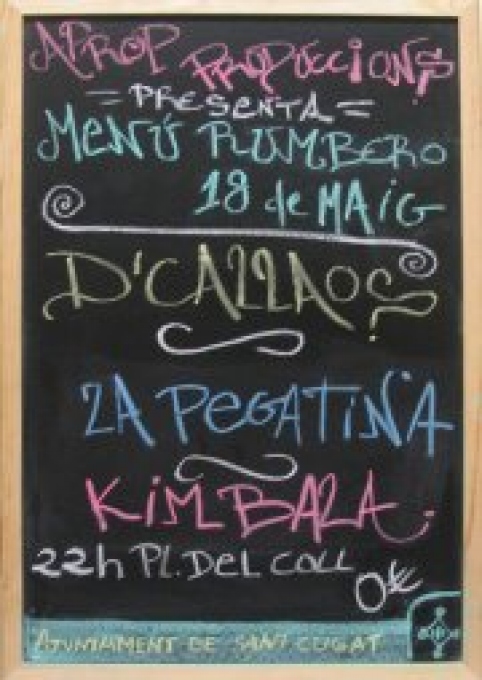 APROP PRODUCCIONS
= PRESENTA =
MENÚ RUMBERO
18 de MAIG
D'CALLAOS
LA PEGATINA
KIMBALA.
22h PL.DEL COLL
AJUNTAMENT DE SANT CUGAT